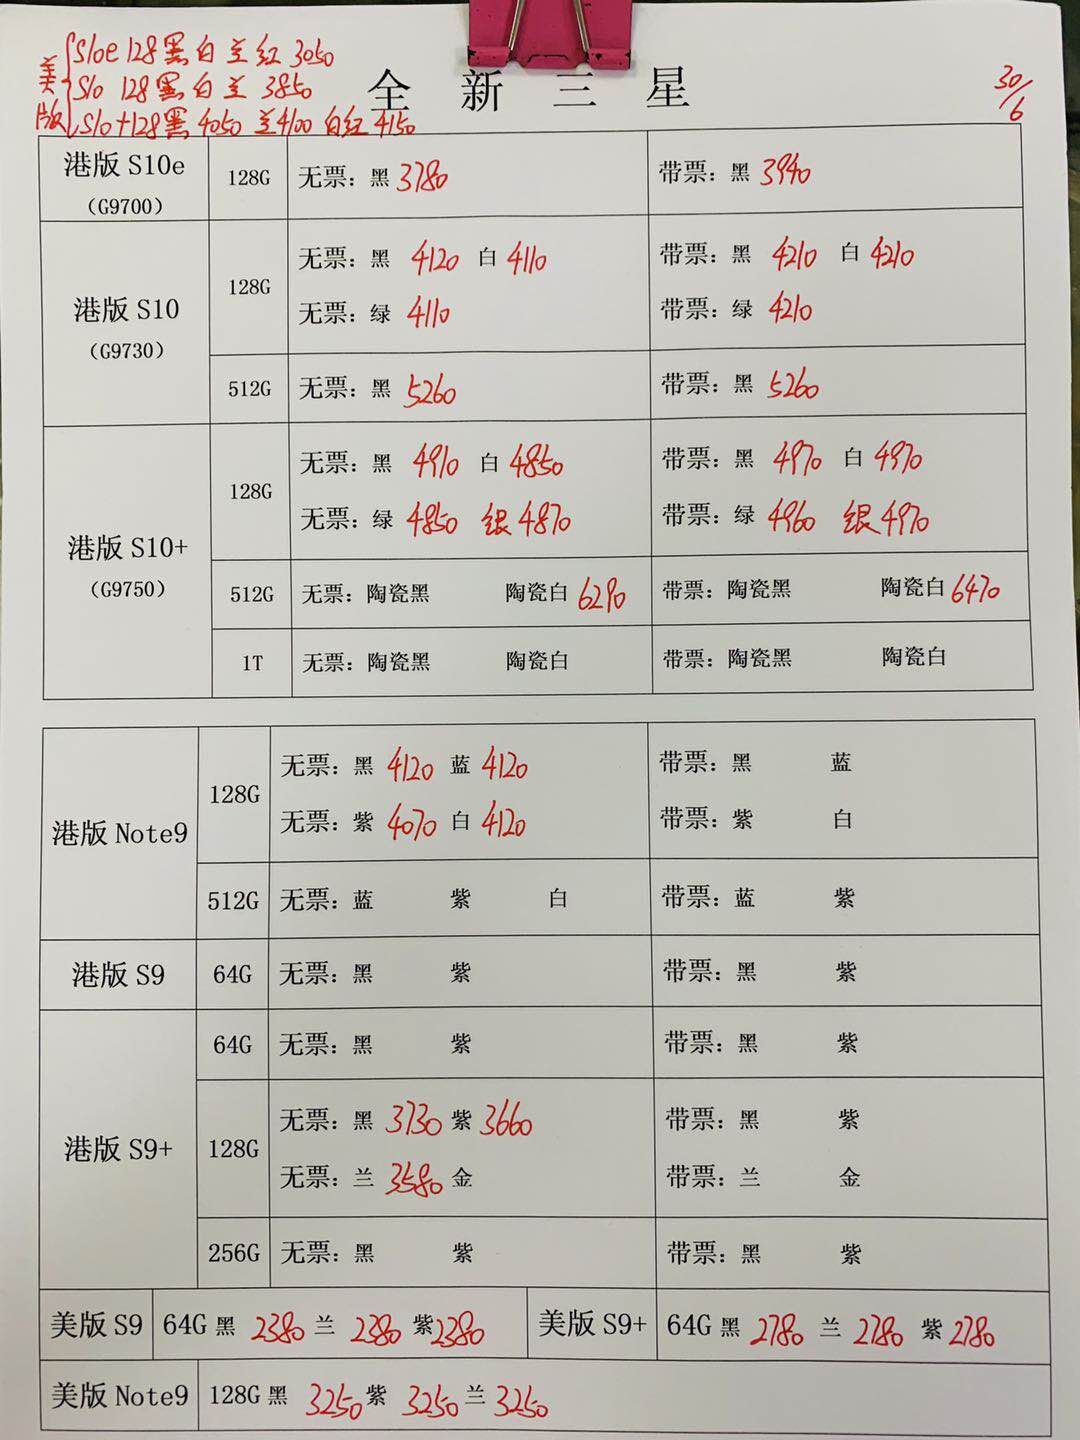 美版 S10e 128 黑 白 兰 红 3050
S10 128 黑 白 兰 3850
S10+128 黑 4050 兰4100 白红 4150
全 新 三 星
30/6
港版 S10e
（G9700）
128G
无票：黑 3780
带票：黑 3940
港版 S10
（G9730）
128G
无票：黑 4120 白 4110
带票：黑 4210 白 4210
无票：绿 4110
带票：绿 4210
512G
无票：黑 5260
带票：黑 5260
港版 S10+
（G9750）
128G
无票：黑 4910 白 4850
带票：黑 4970 白 4970
无票：绿 4850 银 4870
带票：绿 4960 银 4970
512G
无票：陶瓷黑 陶瓷白 6290
带票：陶瓷黑 陶瓷白 6470
1T
无票：陶瓷黑 陶瓷白
带票：陶瓷黑 陶瓷白
港版 Note9
128G
无票：黑 4120 蓝 4120
带票：黑 蓝
无票：紫 4070 白 4120
带票：紫 白
512G
无票：蓝 紫 白
带票：蓝 紫
港版 S9
64G
无票：黑 紫
带票：黑 紫
港版 S9+
64G
无票：黑 紫
带票：黑 紫
128G
无票：黑 3730 紫 3660
带票：黑 紫
无票：兰 3580 金
带票：兰 金
256G
无票：黑 紫
带票：黑 紫
美版 S9
64G 黑 2380 兰 2380 紫 2380
美版 S9+
64G 黑 2780 兰 2780 紫 2780
美版 Note9
128G 黑 3250 紫 3250 兰 3250